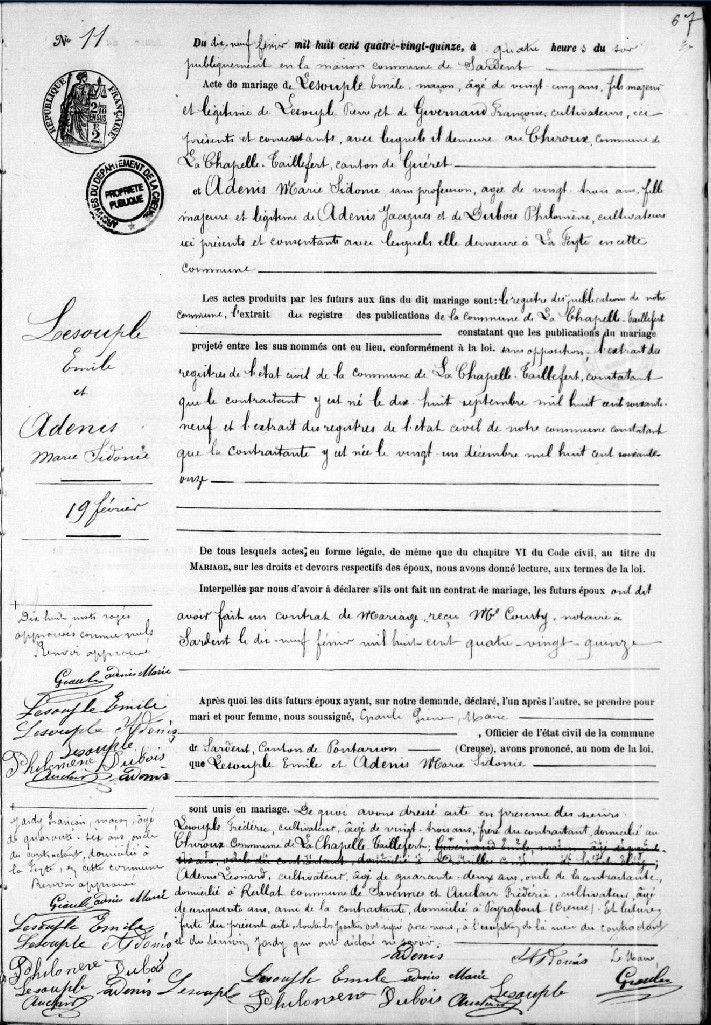 67
N° 11
Du dix-neuf février mil huit cent quatre-vingt-quinze, à quatre heures du soir
publiquement en la maison commune de Sardent
RÉPUBLIQUE FRANÇAISE
ARCHIVES DU DÉPARTEMENT DE LA CREUSE
PROPRIÉTÉ PUBLIQUE
Acte de mariage de Lesouple Emile maçon, âgé de vingt cinq ans, fils majeur
et légitime de Lesouple Pierre et de Givernaud Françoise, cultivateurs, ici
présents et consentants, avec lesquels il demeure au Chiroux, commune de
La Chapelle-Taillefert, canton de Guéret
et Adenis Marie Sidonie sans profession, agée de vingt-trois ans, fille
majeure et légitime de Adenis Jacques et de Dubois Philomène, cultivateurs
ici présents et consentants avec lesquels elle demeure à La Feyte en cette
commune
Lesouple
Emile
et
Adenis
Marie Sidonie
19 février
Les actes produits par les futurs aux fins du dit mariage sont: le registre des publications de notre
commune, l'extrait du registre des publications de la commune de La Chapelle-Taillefert
constatant que les publications du mariage
projeté entre les sus-nommés ont eu lieu, conformément à la loi. sans opposition. l'extrait des
registres de l'état civil de la commune de La Chapelle-Taillefert, constatant
que le contractant y est né le dix-huit septembre mil huit cent soixante-
neuf et l'extrait des registres de l'état civil de notre commune constatant
que la contractante y est née le vingt-un décembre mil huit cent soixante-
onze
De tous lesquels actes, en forme légale, de même que du chapitre VI du Code civil, au titre du
MARIAGE, sur les droits et devoirs respectifs des époux, nous avons donné lecture, aux termes de la loi.
Interpellés par nous d'avoir à déclarer s'ils ont fait un contrat de mariage, les futurs époux ont dit
avoir fait un contrat de mariage, reçu Me Courty, notaire à
Sardent le dix-neuf février mil huit cent quatre-vingt-quinze
Dix huit mots rayés
approuvés comme nuls
Renvoi approuvé
adenis Marie
Lesouple Emile
Lesouple
Lesouple
Philomène Dubois
Auclair adenis
Après quoi les dits futurs époux ayant, sur notre demande, déclaré, l'un après l'autre, se prendre pour
mari et pour femme, nous soussigné, Maire
, Officier de l'état civil de la commune
de Sardent, Canton de Pontarion (Creuse), avons prononcé, au nom de la loi,
que Lesouple Emile et Adenis Marie Sidonie
Jardy François, maçon, âgé
de quarante-six ans, oncle
du contractant, domicilié à
la Feyte, en cette commune
Renvoi approuvé
adenis Marie
Lesouple Emile
Lesouple
Philomène Dubois
Lesouple adenis
Auclair
sont unis en mariage. De quoi avons dressé acte en présence des sieurs
Lesouple Frédéric, cultivateur, âgé de vingt-trois ans, frère du contractant, domicilié au
Chiroux commune de La Chapelle Taillefert,
Adenis Léonard, cultivateur, âgé de quarante-deux ans, oncle de la contractante,
domicilié à commune de et Auclair Frédéric, cultivateur, âgé
de cinquante ans, ami de la contractante, domicilié à Peyrabout (Creuse). Et lecture
faite du présent acte les parties ont signé avec nous, à l'exception de la mère du contractant
et du témoin Jardy qui ont déclaré ne savoir.
adenis
Le Maire,
Lesouple Lesouple Emile adenis Marie
Philomène Dubois Auclair Lesouple